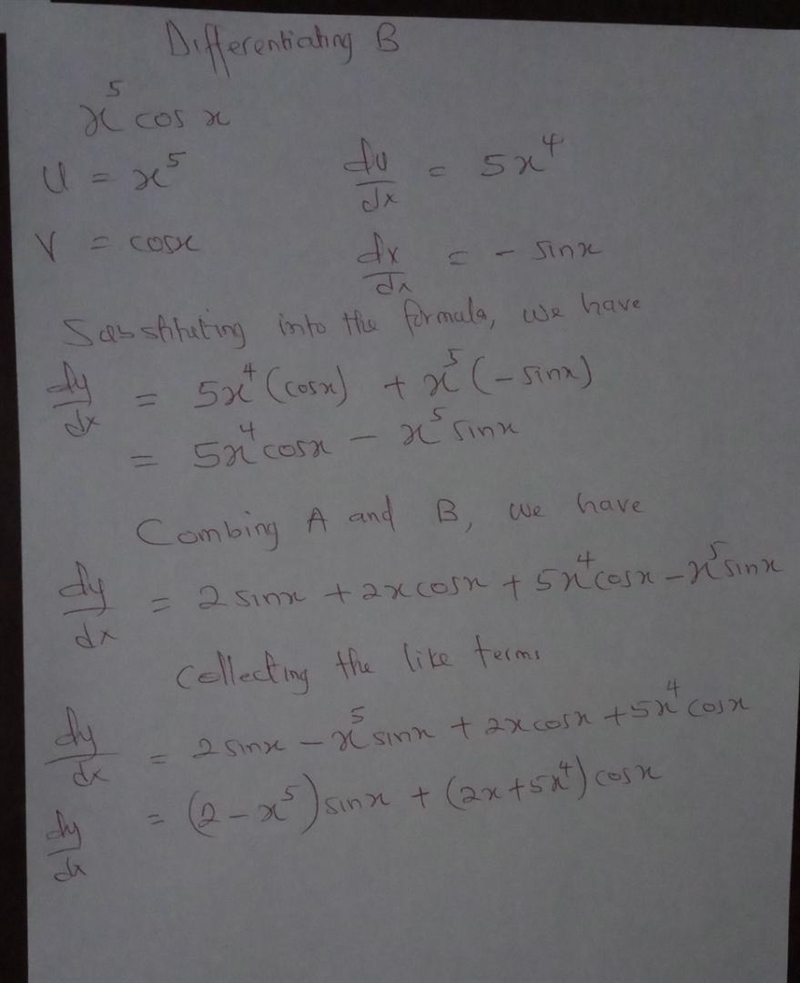 Differentiating B
x⁵ cos x
U = x⁵ du/dx = 5x⁴
V = cosx dv/dx = - sinx
Substituting into the formula, we have
dy/dx = 5x⁴(cosx) + x⁵(-sinx)
= 5x⁴cosx - x⁵sinx
Combing A and B, we have
dy/dx = 2sinx + 2xcosx + 5x⁴cosx - x⁵sinx
Collecting the like terms
dy/dx = 2sinx - x⁵sinx + 2xcosx + 5x⁴cosx
dy/dx = (2 - x⁵)sinx + (2x+5x⁴)cosx